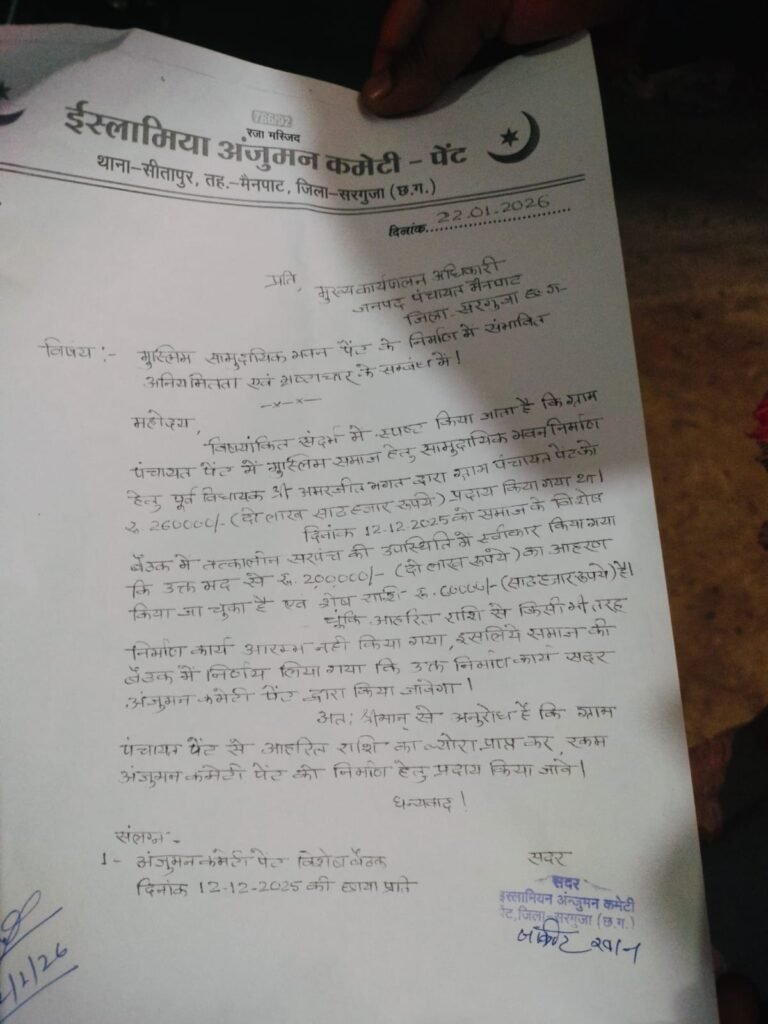 786/92
रजा मस्जिद
ईस्लामिया अंजुमन कमेटी - पेंट
थाना-सीतापुर, तह.-मैनपाट, जिला-सरगुजा (छ.ग.)
दिनांक 22.01.2026
प्रति, मुख्यकार्यपालन अधिकारी
जनपद पंचायत मैनपाट
जिला- सरगुजा छ.ग.
विषय :- मुस्लिम सामुदायिक भवन पेंट के निर्माण में संभावित
अनियमितता एवं भ्रष्टाचार के सम्बंध में।
-x-x-
महोदय,
विषयांकित संदर्भ में स्पष्ट किया जाता है कि ग्राम
पंचायत पेंट में मुस्लिम समाज हेतु सामुदायिक भवन निर्माण
हेतु पूर्व विधायक श्री अमरजीत भगत द्वारा ग्राम पंचायत पेंट को
रु. 260000/- (दो लाख साठ हजार रूपये) प्रदाय किया गया था।
दिनांक 12.12.2025 को समाज के विशेष
बैठक में तत्कालीन सरपंच की उपस्थिति में स्वीकार किया गया
कि उक्त मद से रू. 200000/- (दो लाख रूपये) का आहरण
किया जा चुका है एवं शेष राशि- रु. 60000/- (साठ हजार रूपये) है।
चूंकि आहरित राशि से किसी भी तरह
निर्माण कार्य आरम्भ नही किया गया, इसलिये समाज की
बैठक में निर्णय लिया गया कि उक्त निर्माण कार्य सदर
अंजुमन कमेटी पेंट द्वारा किया जावेगा।
अतः श्रीमान् से अनुरोध है कि ग्राम
पंचायत पेंट से आहरित राशि का ब्योरा प्राप्त कर, रकम
अंजुमन कमेटी पेंट को निर्माण हेतु प्रदाय किया जावे।
धन्यवाद!
संलग्न :-
1- अंजुमन कमेटी पेंट विशेष बैठक
दिनांक 12-12-2025 की छाया प्रति
सदर
सदर
इस्लामियन अंन्जुमन कमेटी
पेंट, जिला- सरगुजा (छ.ग.)
खान
/1/26